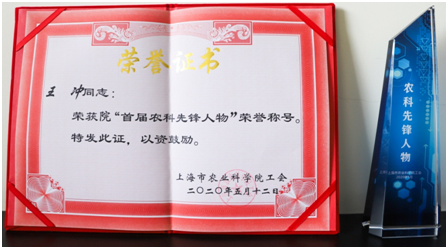 荣誉证书
王 冲同志：
荣获院“首届农科先锋人物”荣誉称号。
特发此证，以资鼓励。
上海市农业科学院工会
二〇二〇年五月十二日
农科先锋人物